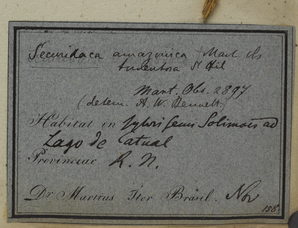 Securidaca amazonica Mart.
tomentosa St Hil
Mart. Obs. 2897
(determ. A. W. Bennett)
Habitat in Solimoes ad
Lago de
Provinciae R. N.
Dr Martius Iter Brasil. Nov